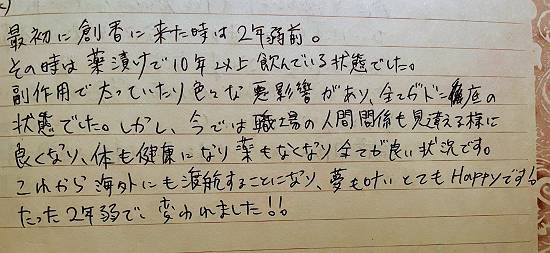 最初に創香に来た時は2年弱前。
その時は薬漬けで10年以上飲んでいる状態でした。
副作用で太っていたり色々な悪影響があり、全てがドン底の
状態でした。しかし、今では職場の人間関係も見違える様に
良くなり、体も健康になり薬もなくなり全てが良い状況です。
これから海外にも渡航することになり、夢も叶いとてもHappyです!
たった2年弱で変われました!!